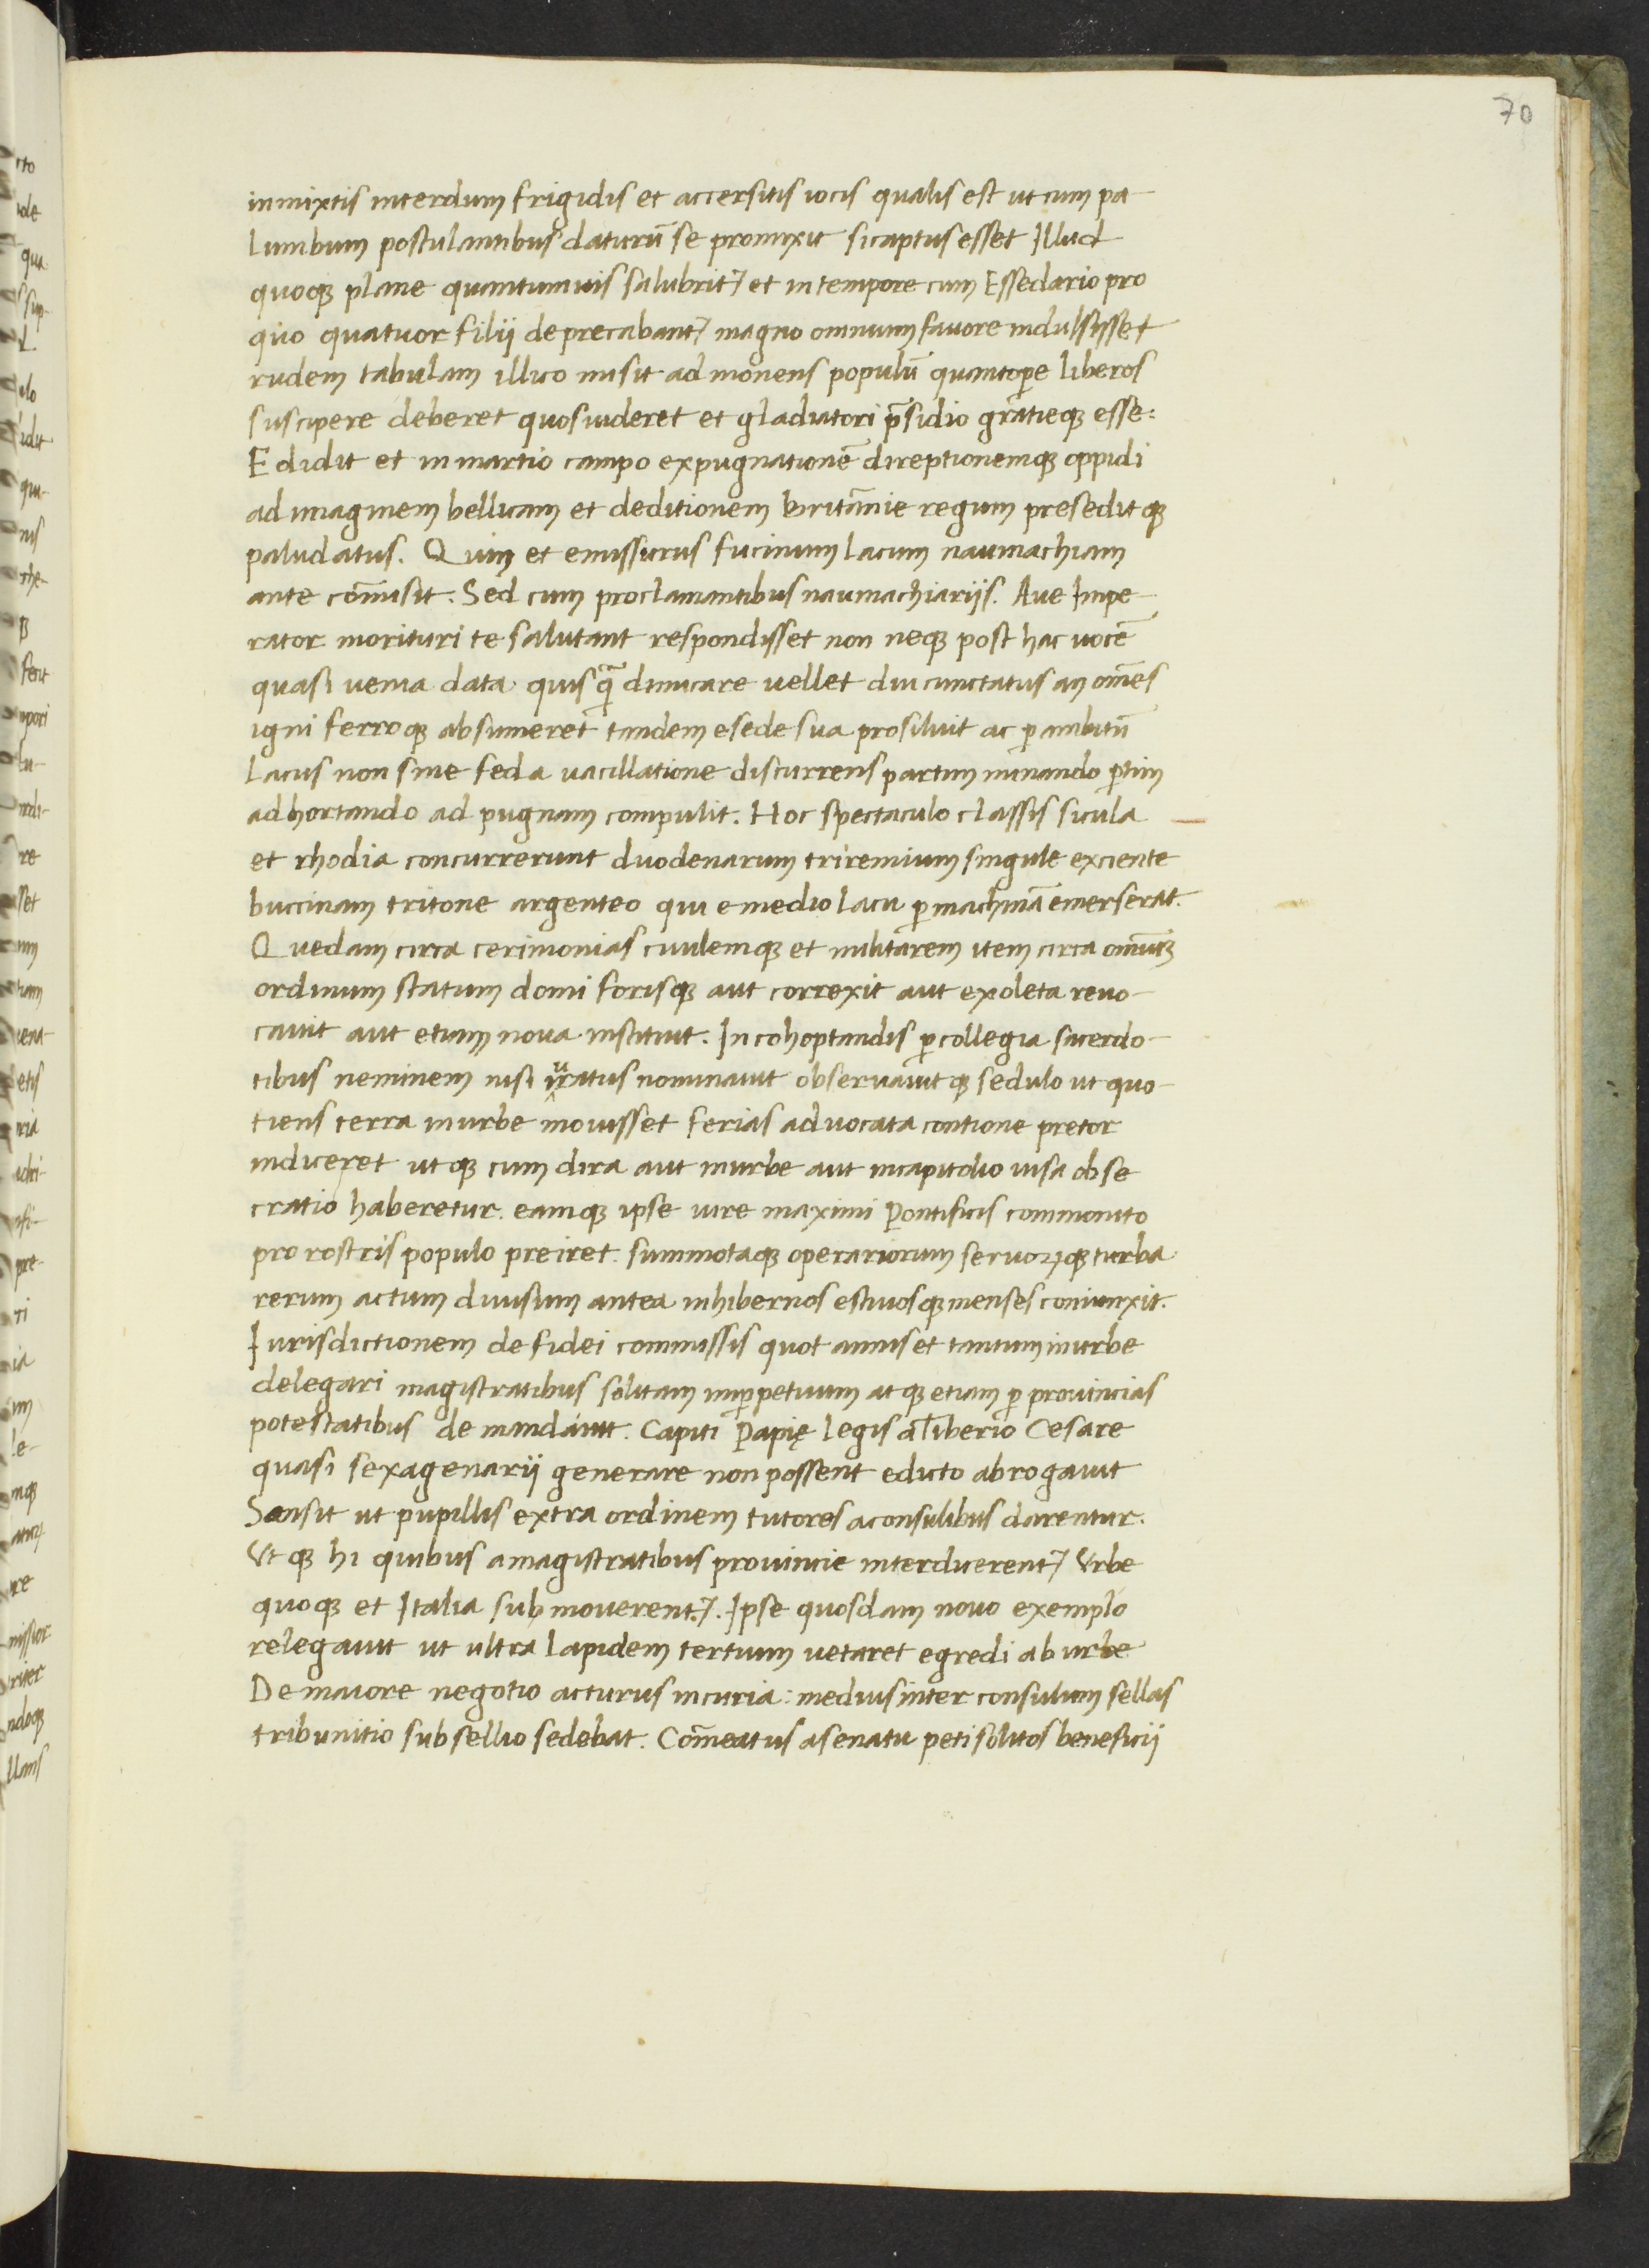 70
inmixtis interdum frigidis et accersitis iocis qualis est ut cum pa-
lumbum postulantibus daturũ se promixit si captus esset Illud
quoqꝫ plane quantumuis salubrit⁊ et in tempore cum Essedario pro
quo quatuor filij deprecabant⁊ magno omnium fauore indulsisset
rudem tabulam illico misit admonens populũ quantoꝑe liberos
suscipere deberet quos uideret et gladiatori p̃sidio gratieqꝫ esse:
Edidit et in martio campo expugnationẽ direptionemqꝫ oppidi
ad imaginem bellicam et deditionem britãnie regum presedit qꝫ
paludatus. Quin et emissurus fucinum lacum naumachiam
ante cõmisit. Sed cum proclamantibus naumachiarijs. Aue Impe-
rator morituri te salutant respondisset non neqꝫ post hac uocẽ
quasi uenia data quisq̃ dimicare uellet diu cunctatus an om̃es
igni ferroqꝫ absumeret tandem e sede sua prosiluit ac ꝑ ambitũ
lacus non sine feda uacillatione discurrens partim minando ꝑtim
adhortando ad pugnam compulit. Hoc spectaculo classis sicula
et rhodia concurrerunt duodenarum triremium singule exciente
buccinam tritone argenteo qui e medio lacu ꝑ machinã emerserat.
Quedam circa cerimonias ciuilemqꝫ et militarem item circa omniũ
ordinum statum domi forisqꝫ aut correxit aut exoleta reuo-
cauit aut etiam noua instituit. In cohoptandis ꝑ collegia sacerdo-
tibus neminem nisi iuratus nominauit obseruauit qꝫ sedulo ut quo-
tiens terra in urbe mouisset ferias aduocata contione pretor
indiceret ut qꝫ cum dira aut in urbe aut in capitolio uisa obse
cratio haberetur. eamqꝫ ipse iure maximi Pontificis commonito
pro rostris populo preiret. summotaqꝫ operariorum seruoꝝqꝫ turba
rerum actum diuisum antea in hibernos estiuosqꝫ menses coniunxit.
Iurisdictionem de fidei commissis quot annis et tantum in urbe
delegari magistratibus solitam in ꝑpetuum at qꝫ etiam ꝑ prouincias
potestatibus de mandauit. Capiti Papię legis a Tiberio Cesare
quasi sexagenarij generare non possent edicto abrogauit
Sansit ut pupillis extra ordinem tutores a consulibus darentur.
Ut qꝫ hi quibus a magistratibus prouincie interdicerent⁊ Urbe
quoqꝫ et Italia submouerent⁊. Ipse quosdam nouo exemplo
relegauit ut ultra lapidem tertium uetaret egredi ab urbe
De maiore negotio acturus in curia: medius inter consulum sellas
tribunitio subsellio sedebat. Com̃eatus a senatu peti solitos beneficij